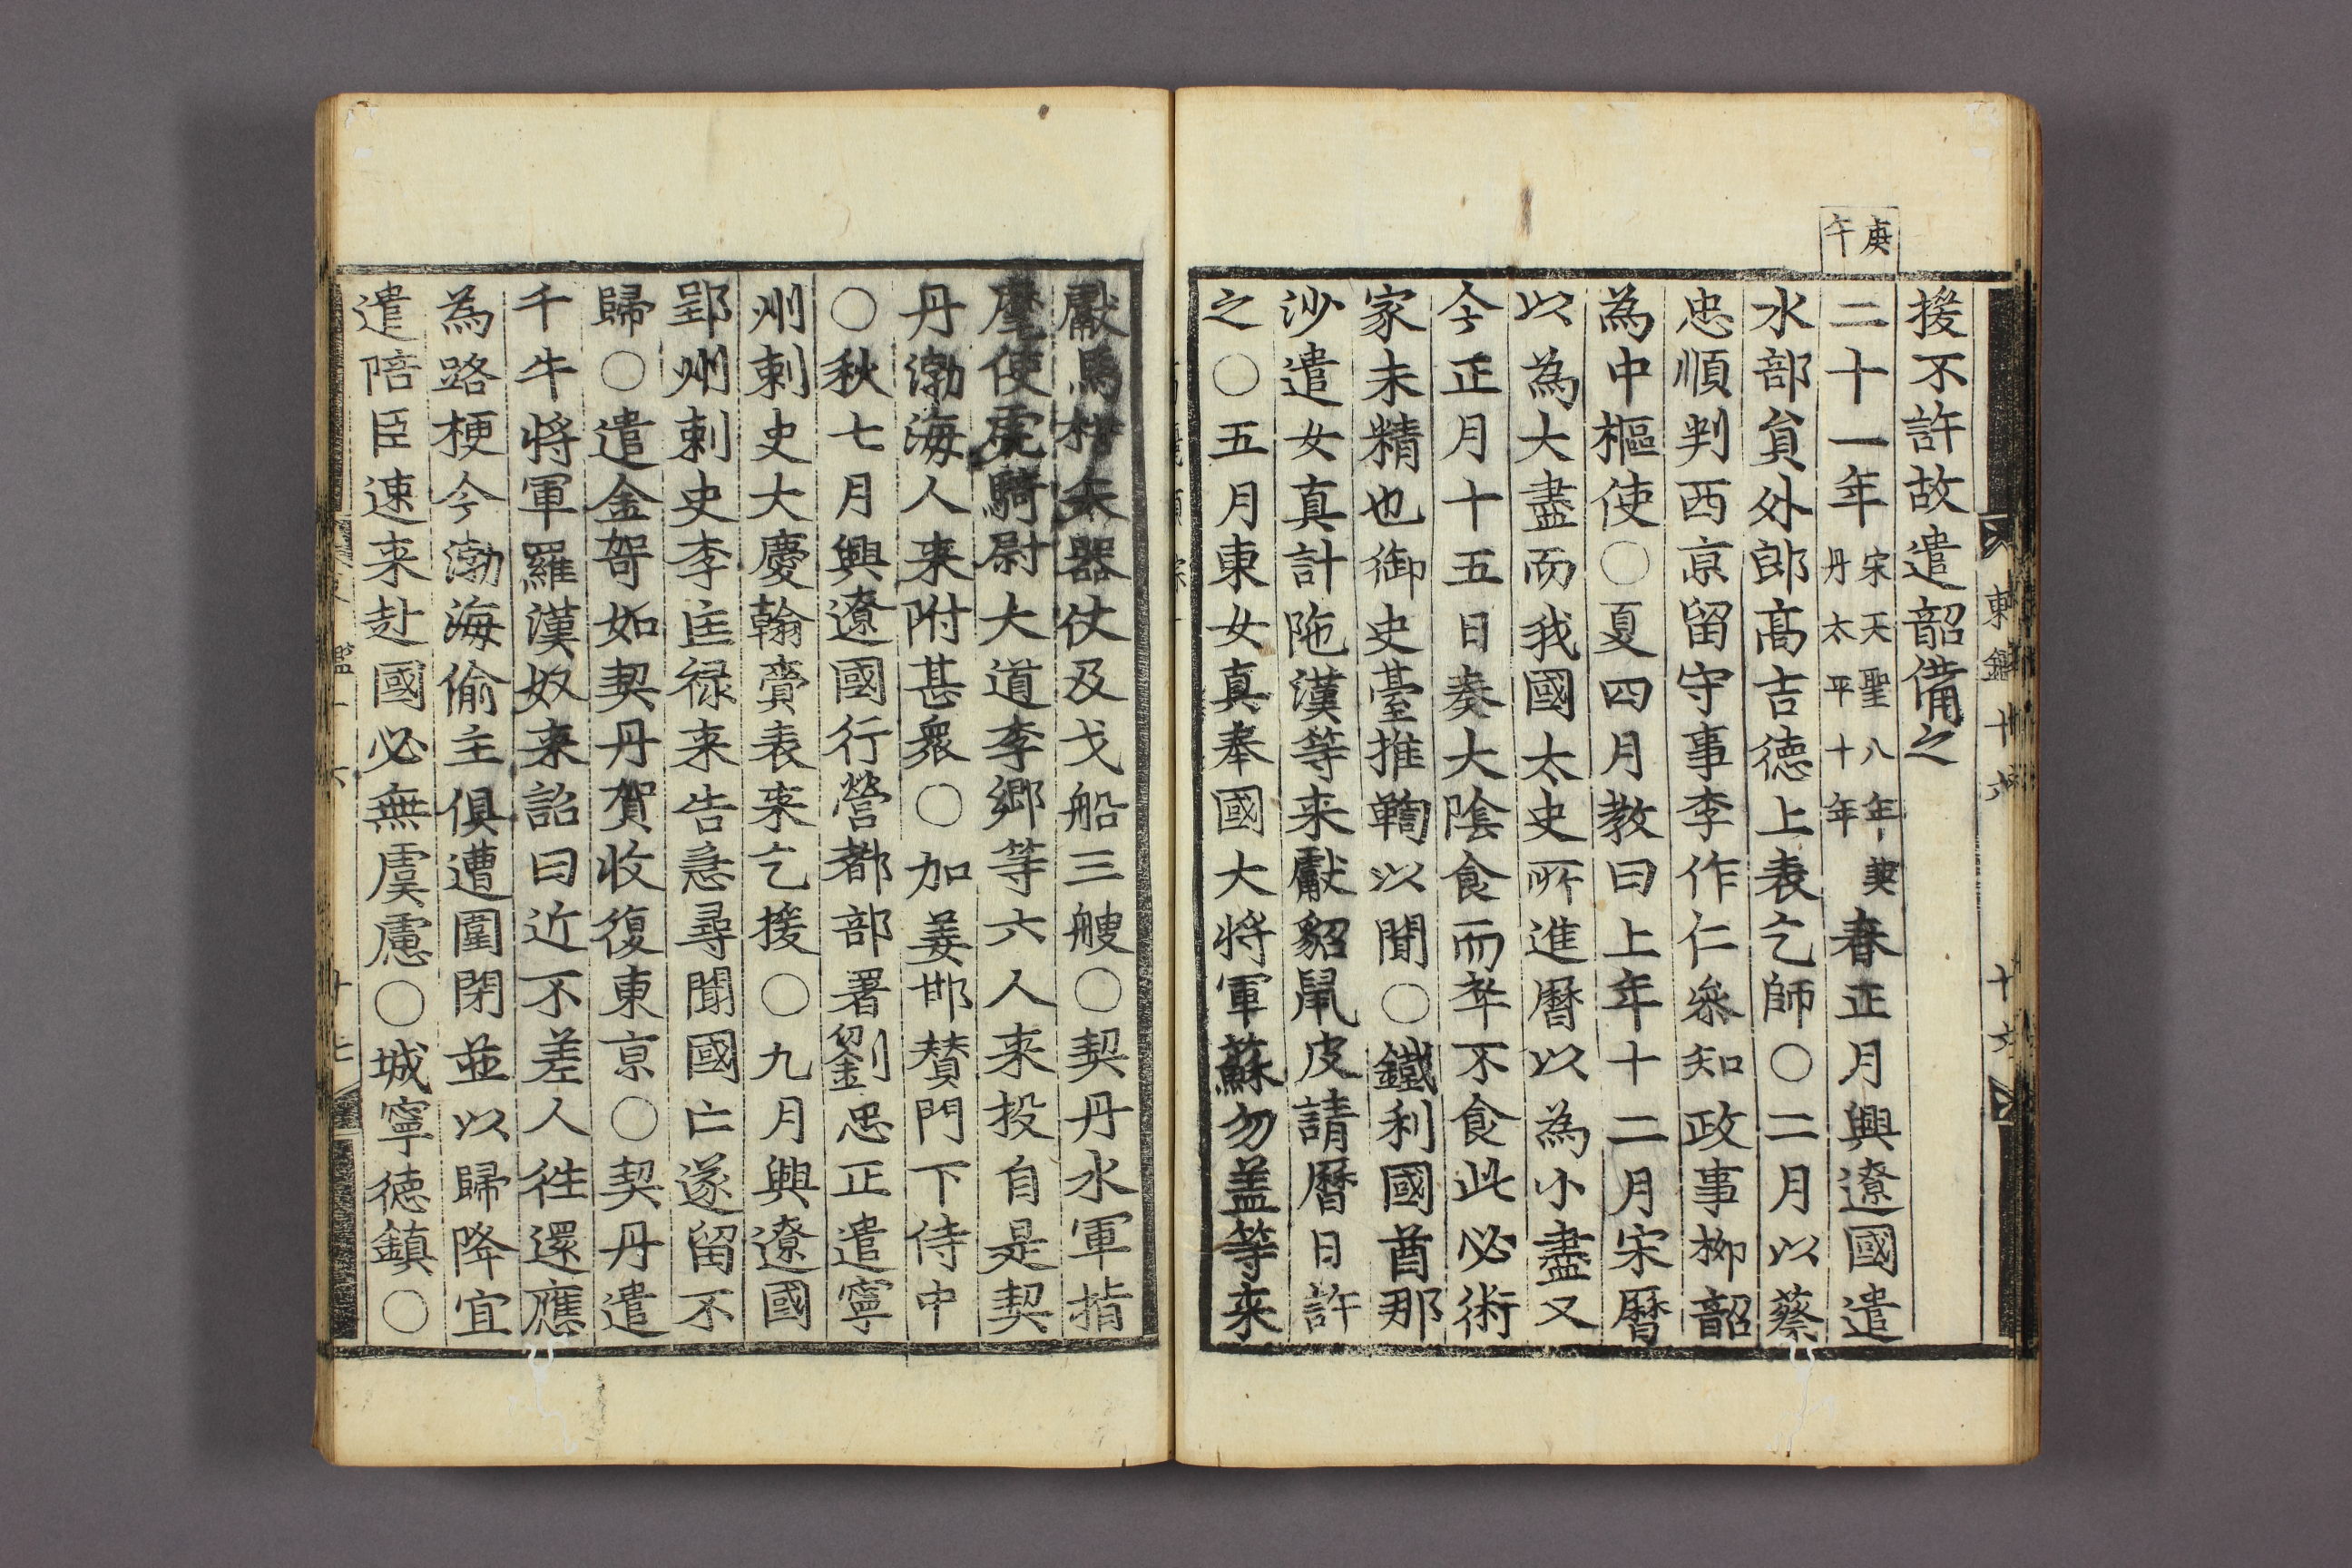 庚午
援不許故遣韶備之
二十一年宋天聖八年契丹太平十年春正月興遼國遣
水部貟外郎髙吉德上表乞師○二月以蔡
忠順判西京留守事李作仁叅知政事柳韶
為中樞使○夏四月教曰上年十二月宋曆
以為大盡而我國太史所進曆以為小盡又
今正月十五日奏大陰食而卒不食此必術
家未精也御史臺推鞫以聞○鐵利國酋那
沙遣女真計陁漢等来獻貂鼠皮請曆日許
之○五月東女真奉國大將軍蘇勿盖等来
東鑑十六
十六
獻馬楛矢器仗及戈船三艘○契丹水軍指
麾使虎騎尉大道李卿等六人来投自是契
丹渤海人来附甚衆○加姜邯賛門下侍中
○秋七月興遼國行營都部署劉忠正遣寧
州刺史大慶翰賫表来乞援○九月興遼國
郢州刺史李匡禄来告急尋聞國亡遂留不
歸○遣金哿如契丹賀收復東京○契丹遣
千牛將軍羅漢奴来詔曰近不差人徃還應
為路梗今渤海偷主俱遭圍閉並以歸降宜
遣陪臣速来赴國必無虞慮○城寧德鎮○